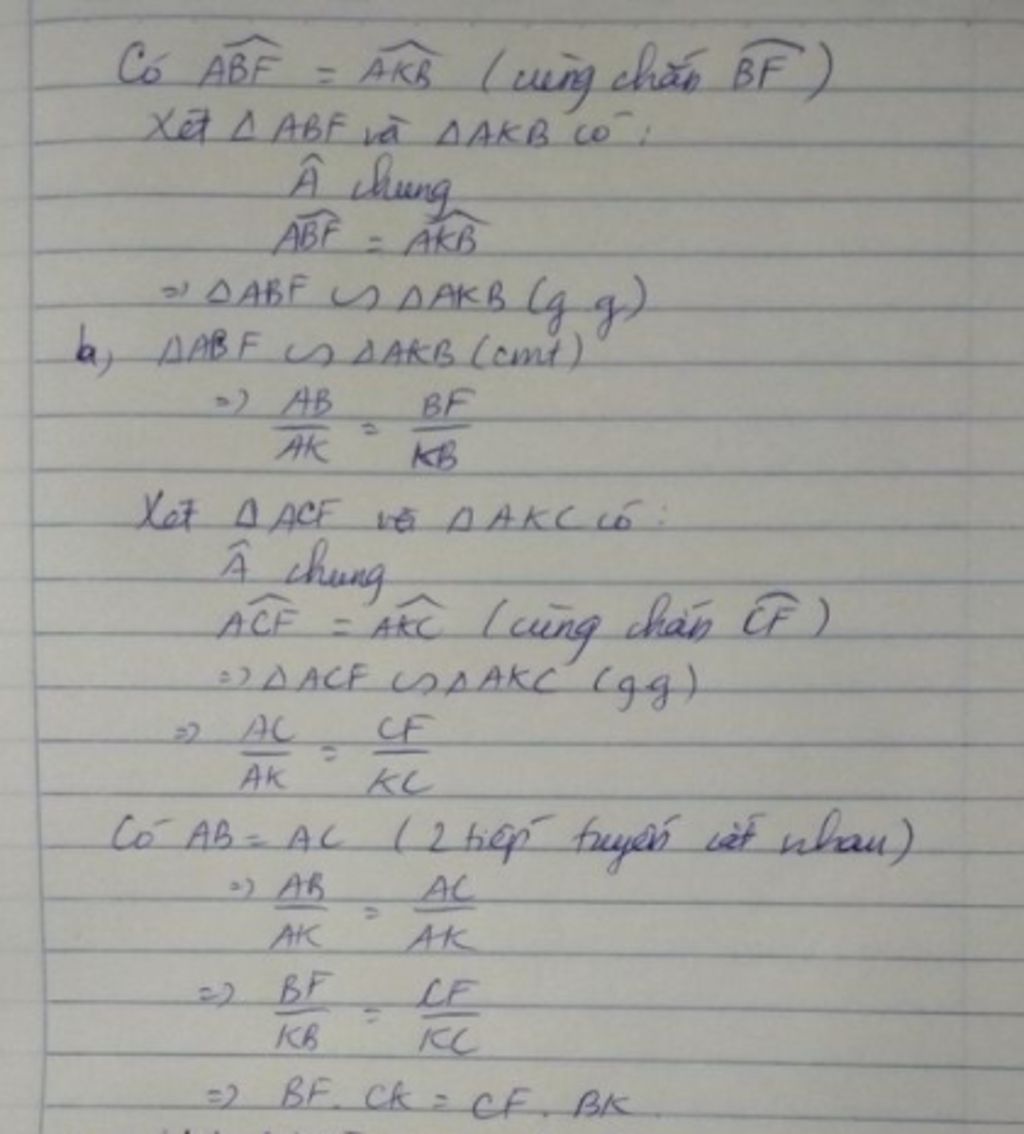 Có \widehat{ABF} = \widehat{AKB} (cùng chắn \overset{\frown}{BF})
Xét Δ ABF và Δ AKB có:
 chung
\widehat{ABF} = \widehat{AKB}
=> ΔABF ∽ ΔAKB (g g)
b, ΔABF ∽ ΔAKB (cmt)
=> \frac{AB}{AK} = \frac{BF}{KB}
Xét Δ ACF và Δ AKC có:
 chung
\widehat{ACF} = \widehat{AKC} (cùng chắn \overset{\frown}{CF})
=> Δ ACF ∽ Δ AKC (g g)
=> \frac{AC}{AK} = \frac{CF}{KC}
Có AB = AC (2 tiếp tuyến cắt nhau)
=> \frac{AB}{AK} = \frac{AC}{AK}
=> \frac{BF}{KB} = \frac{CF}{KC}
=> BF. CK = CF. BK